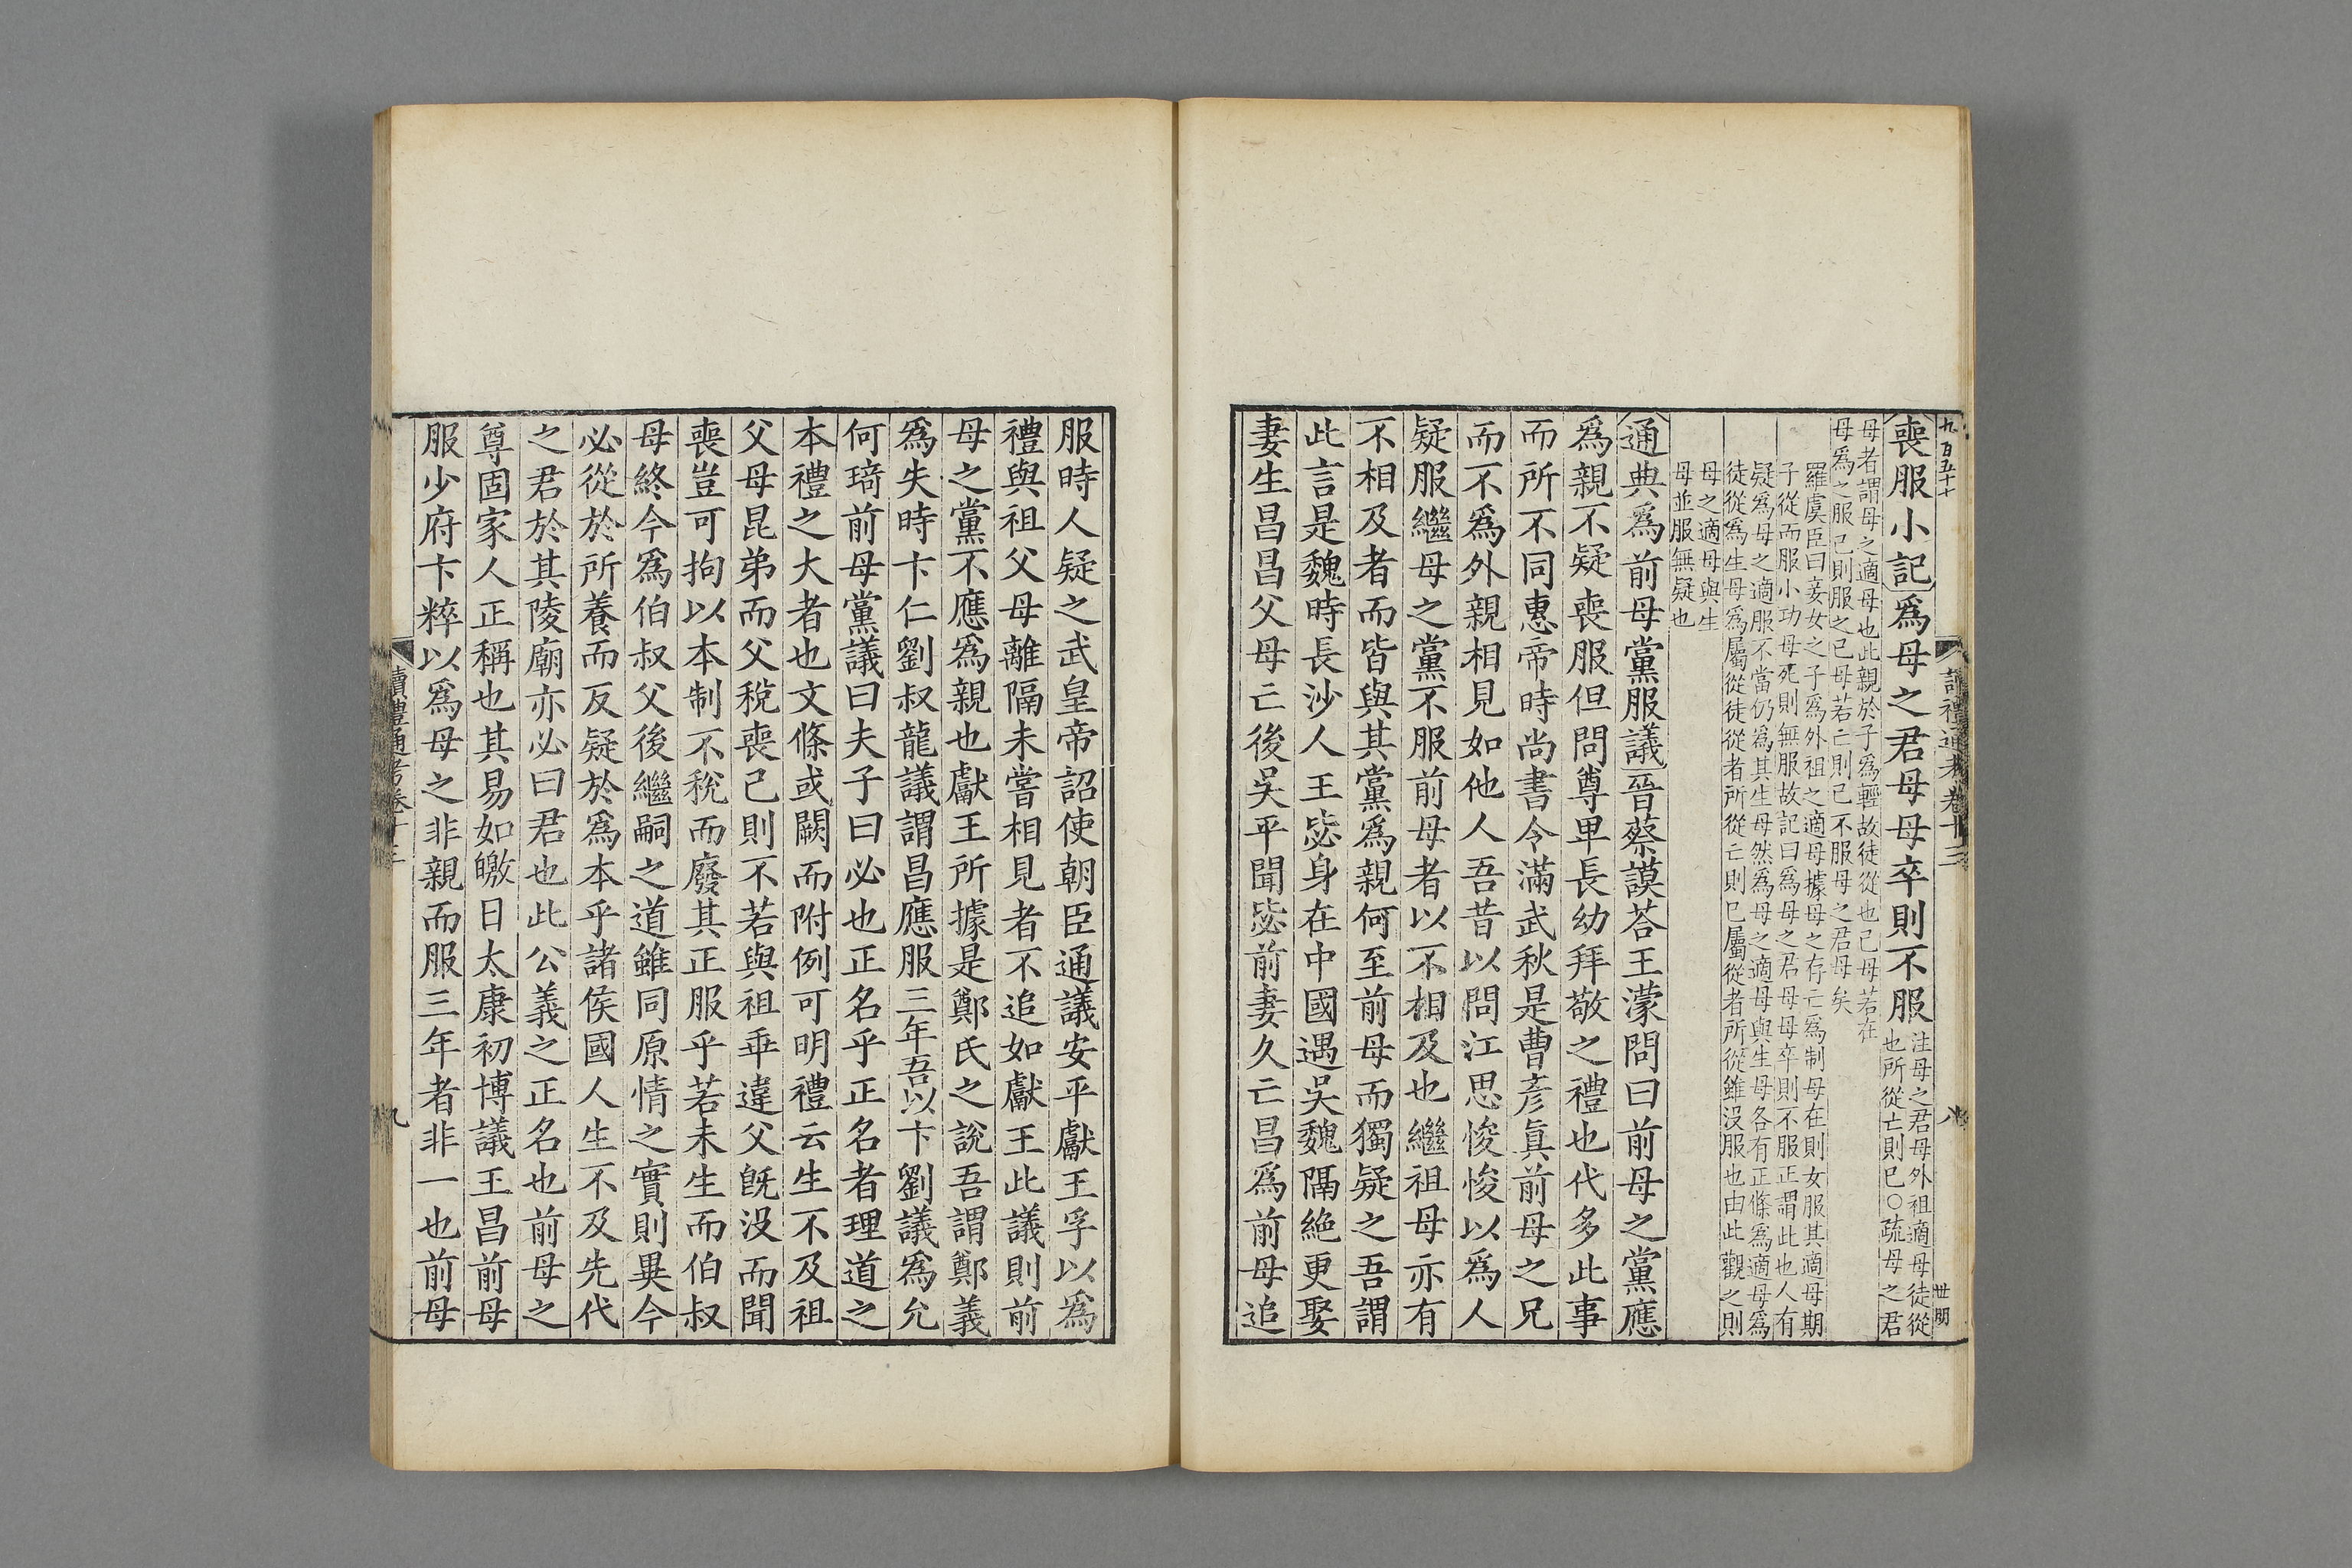 喪服小記爲母之君母母卒則不服注母之君母外祖適母徒從
也所從亡則已○疏母之君
母者謂母之適母也此親於子爲輕故徒從也己母若在
母爲之服己則服之已母若亡則己不服母之君母矣
羅虞臣曰妾女之子爲外祖之適母據母之存亡爲制母在則女服其適母期
子從而服小功母死則無服故記曰爲母之君母母卒則不服正謂此也人有
疑爲母之適服不當仍爲其生母然爲母之適母與生母各有正條爲適母爲
徒從爲生母爲屬從徒從者所從亡則已屬從者所從雖没服也由此觀之則
母之適母與生
母並服無疑也
通典爲前母黨服議晉蔡謨荅王濛問曰前母之黨應
爲親不疑喪服但問尊卑長幼拜敬之禮也代多此事
而所不同惠帝時尚書令滿武秋是曹彦眞前母之兄
而不爲外親相見如他人吾昔以問江思悛悛以爲人
疑服繼母之黨不服前母者以不相及也繼祖母亦有
不相及者而皆與其黨爲親何至前母而獨疑之吾謂
此言是魏時長沙人王毖身在中國遇吳魏隔絶更娶
妻生昌昌父母亡後吳平聞毖前妻久亡昌爲前母追
九百五十七
讀禮通考卷十三
八
世朋
服時人疑之武皇帝詔使朝臣通議安平獻王孚以爲
禮與祖父母離隔未嘗相見者不追如獻王此議則前
母之黨不應爲親也獻王所據是鄭氏之說吾謂鄭義
爲失時卞仁劉叔龍議謂昌應服三年吾以卞劉議爲允
何琦前母黨議曰夫子曰必也正名乎正名者理道之
本禮之大者也文條或闕而附例可明禮云生不及祖
父母昆弟而父稅喪己則不若與祖乖違父旣没而聞
喪豈可拘以本制不稅而廢其正服乎若未生而伯叔
母終今爲伯叔父後繼嗣之道雖同原情之實則異今
必從於所養而反疑於爲本乎諸侯國人生不及先代
之君於其陵廟亦必曰君也此公義之正名也前母之
尊固家人正稱也其易如皦日太康初博議王昌前母
服少府卞粹以爲母之非親而服三年者非一也前母
讀禮通考卷十三
九